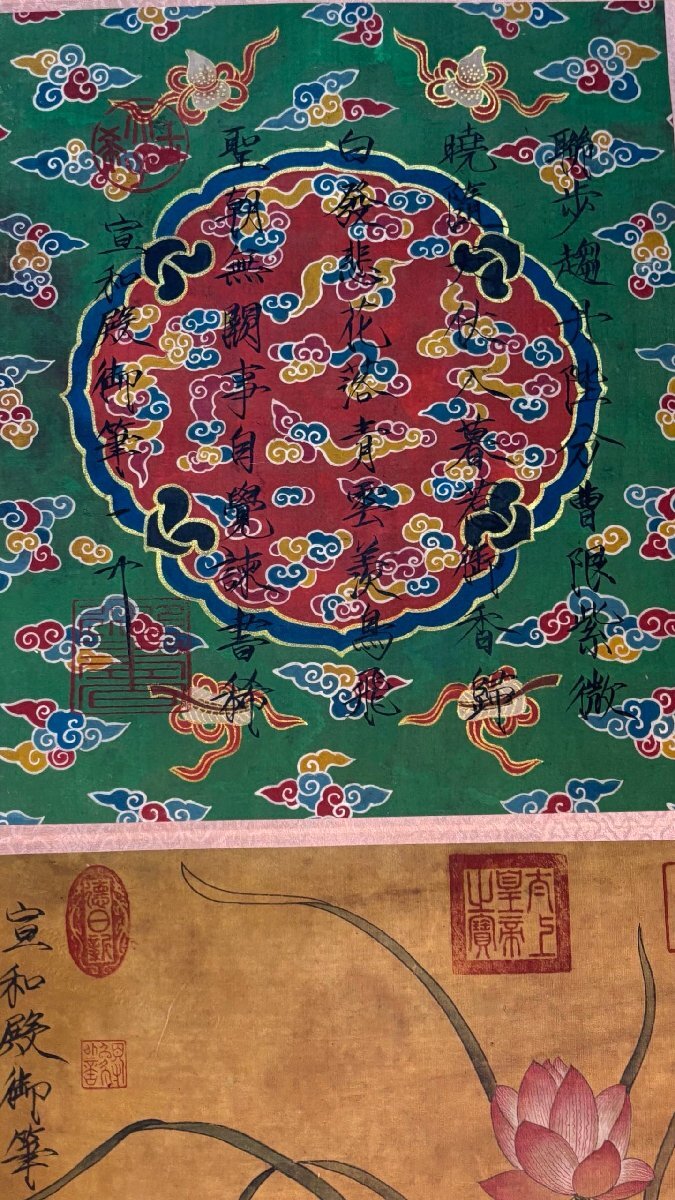 聯步趨丹陛分曹限紫微
曉隨天仗入暮惹御香歸
白發悲花落青雲羨鳥飛
聖朝無闕事自覺諫書稀
宣和殿御筆
太上皇帝之寶
德日新
宣和殿御筆